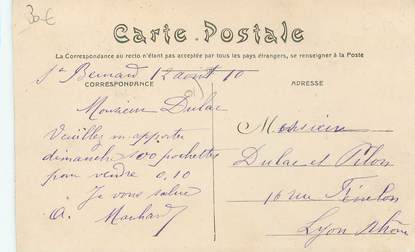 30€
Carte Postale
La Correspondance au recto n'étant pas acceptée par tous les pays étrangers, se renseigner à la Poste
CORRESPONDANCE
ADRESSE
St Bernard 12 août 10
Monsieur Dulac
Veuillez m apporter
dimanche 100 pochettes
pour vendre 0,10
Je vous salue
A. Machard
Monsieur
Dulac et Pilon
16 rue
Lyon Rhône